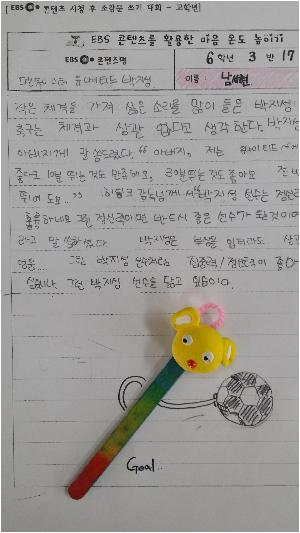 EBS 콘텐츠 시청 후 소감문 쓰기 대회 - 고학년
EBS 콘텐츠를 활용한 마음 온도 높이기
EBS 콘텐츠명
6학년 3 반 17
이름 : 남세현
작은 체격을 가져 싫은 소리를 많이 들은 박지성
축구는 체격과 상관 없다고 생각한다. 박지성
아버지에게 말씀드렸다. "아버지, 저는
좋아요 10분 뛰는 것도 만족해요, 3분 뛰는 것도 좋아요
뛰어도요.." 히딩크 감독님께서 박지성 선수는 정신력
훌륭하네요 그런 정신력이면 반드시 좋은 선수가 될것이며
라고 말씀하셨다. 박지성은 부상을 입더라도
영웅... 그런 박지성 선수처럼 집중력/정신력이 좋아
그런 박지성 선수를 닮고 싶음이다.
Goal..